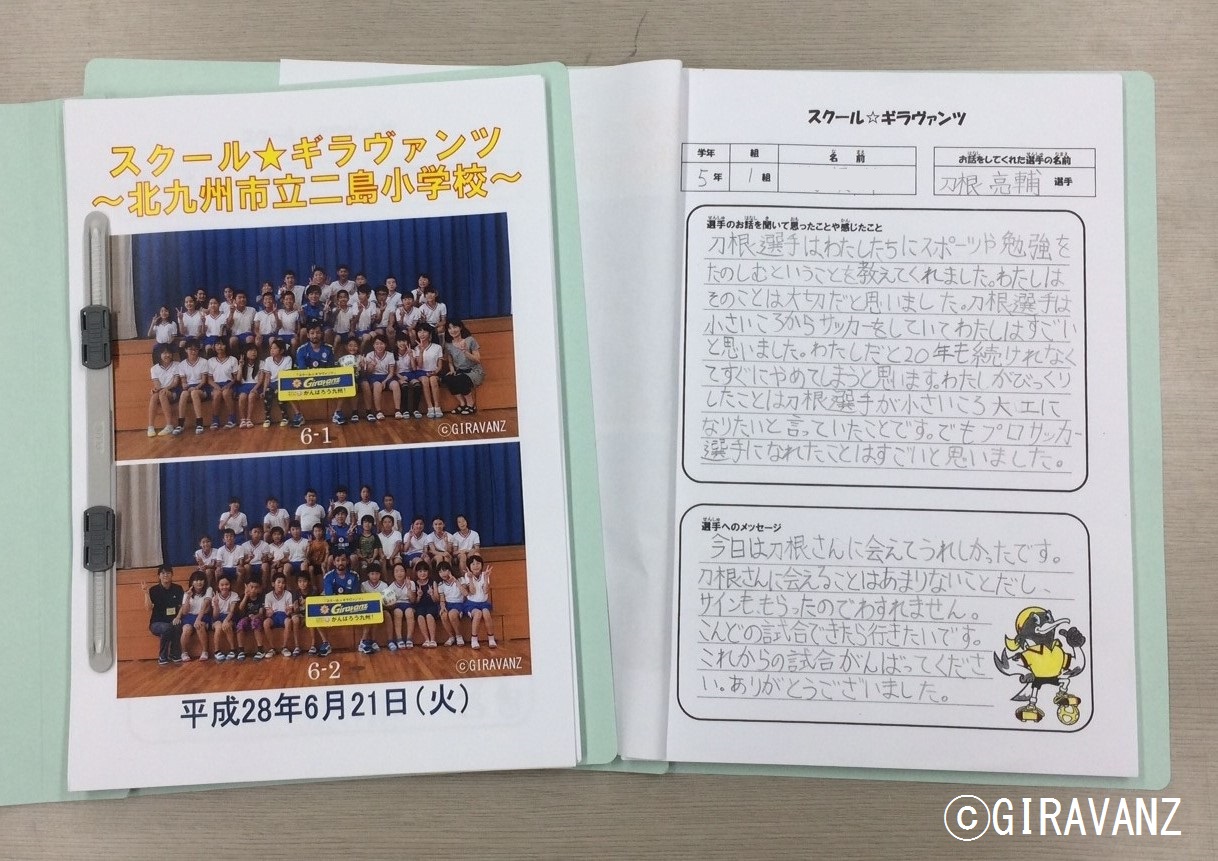 スクール★ギラヴァンツ
～北九州市立二島小学校～
Giravanz
がんばろう九州！
6-1
©GIRAVANZ
Giravanz
がんばろう九州！
6-2
©GIRAVANZ
平成28年6月21日(火)
スクール☆ギラヴァンツ
学年 組 名前
5年 1組
お話をしてくれた選手の名前
刀根 亮輔 選手
選手のお話を聞いて思ったことや感じたこと
刀根選手はわたしたちにスポーツや勉強を
たのしむということを教えてくれました。わたしは
そのことは大切だと思いました。刀根選手は
小さいころからサッカーをしていてわたしはすごい
と思いました。わたしだと20年も続けれなく
てすぐにやめてしまうと思います。わたしがびっくり
したことは刀根選手が小さいころ大工に
なりたいと言っていたことです。でもプロサッカー
選手になれたことはすごいと思いました。
選手へのメッセージ
今日は刀根さんに会えてうれしかったです。
刀根さんに会えることはあまりないことだし、
サインも、もらったのでわすれません。
こんどの試合できたら行きたいです。
これからの試合がんばってくださ
い。ありがとうございました。
©GIRAVANZ